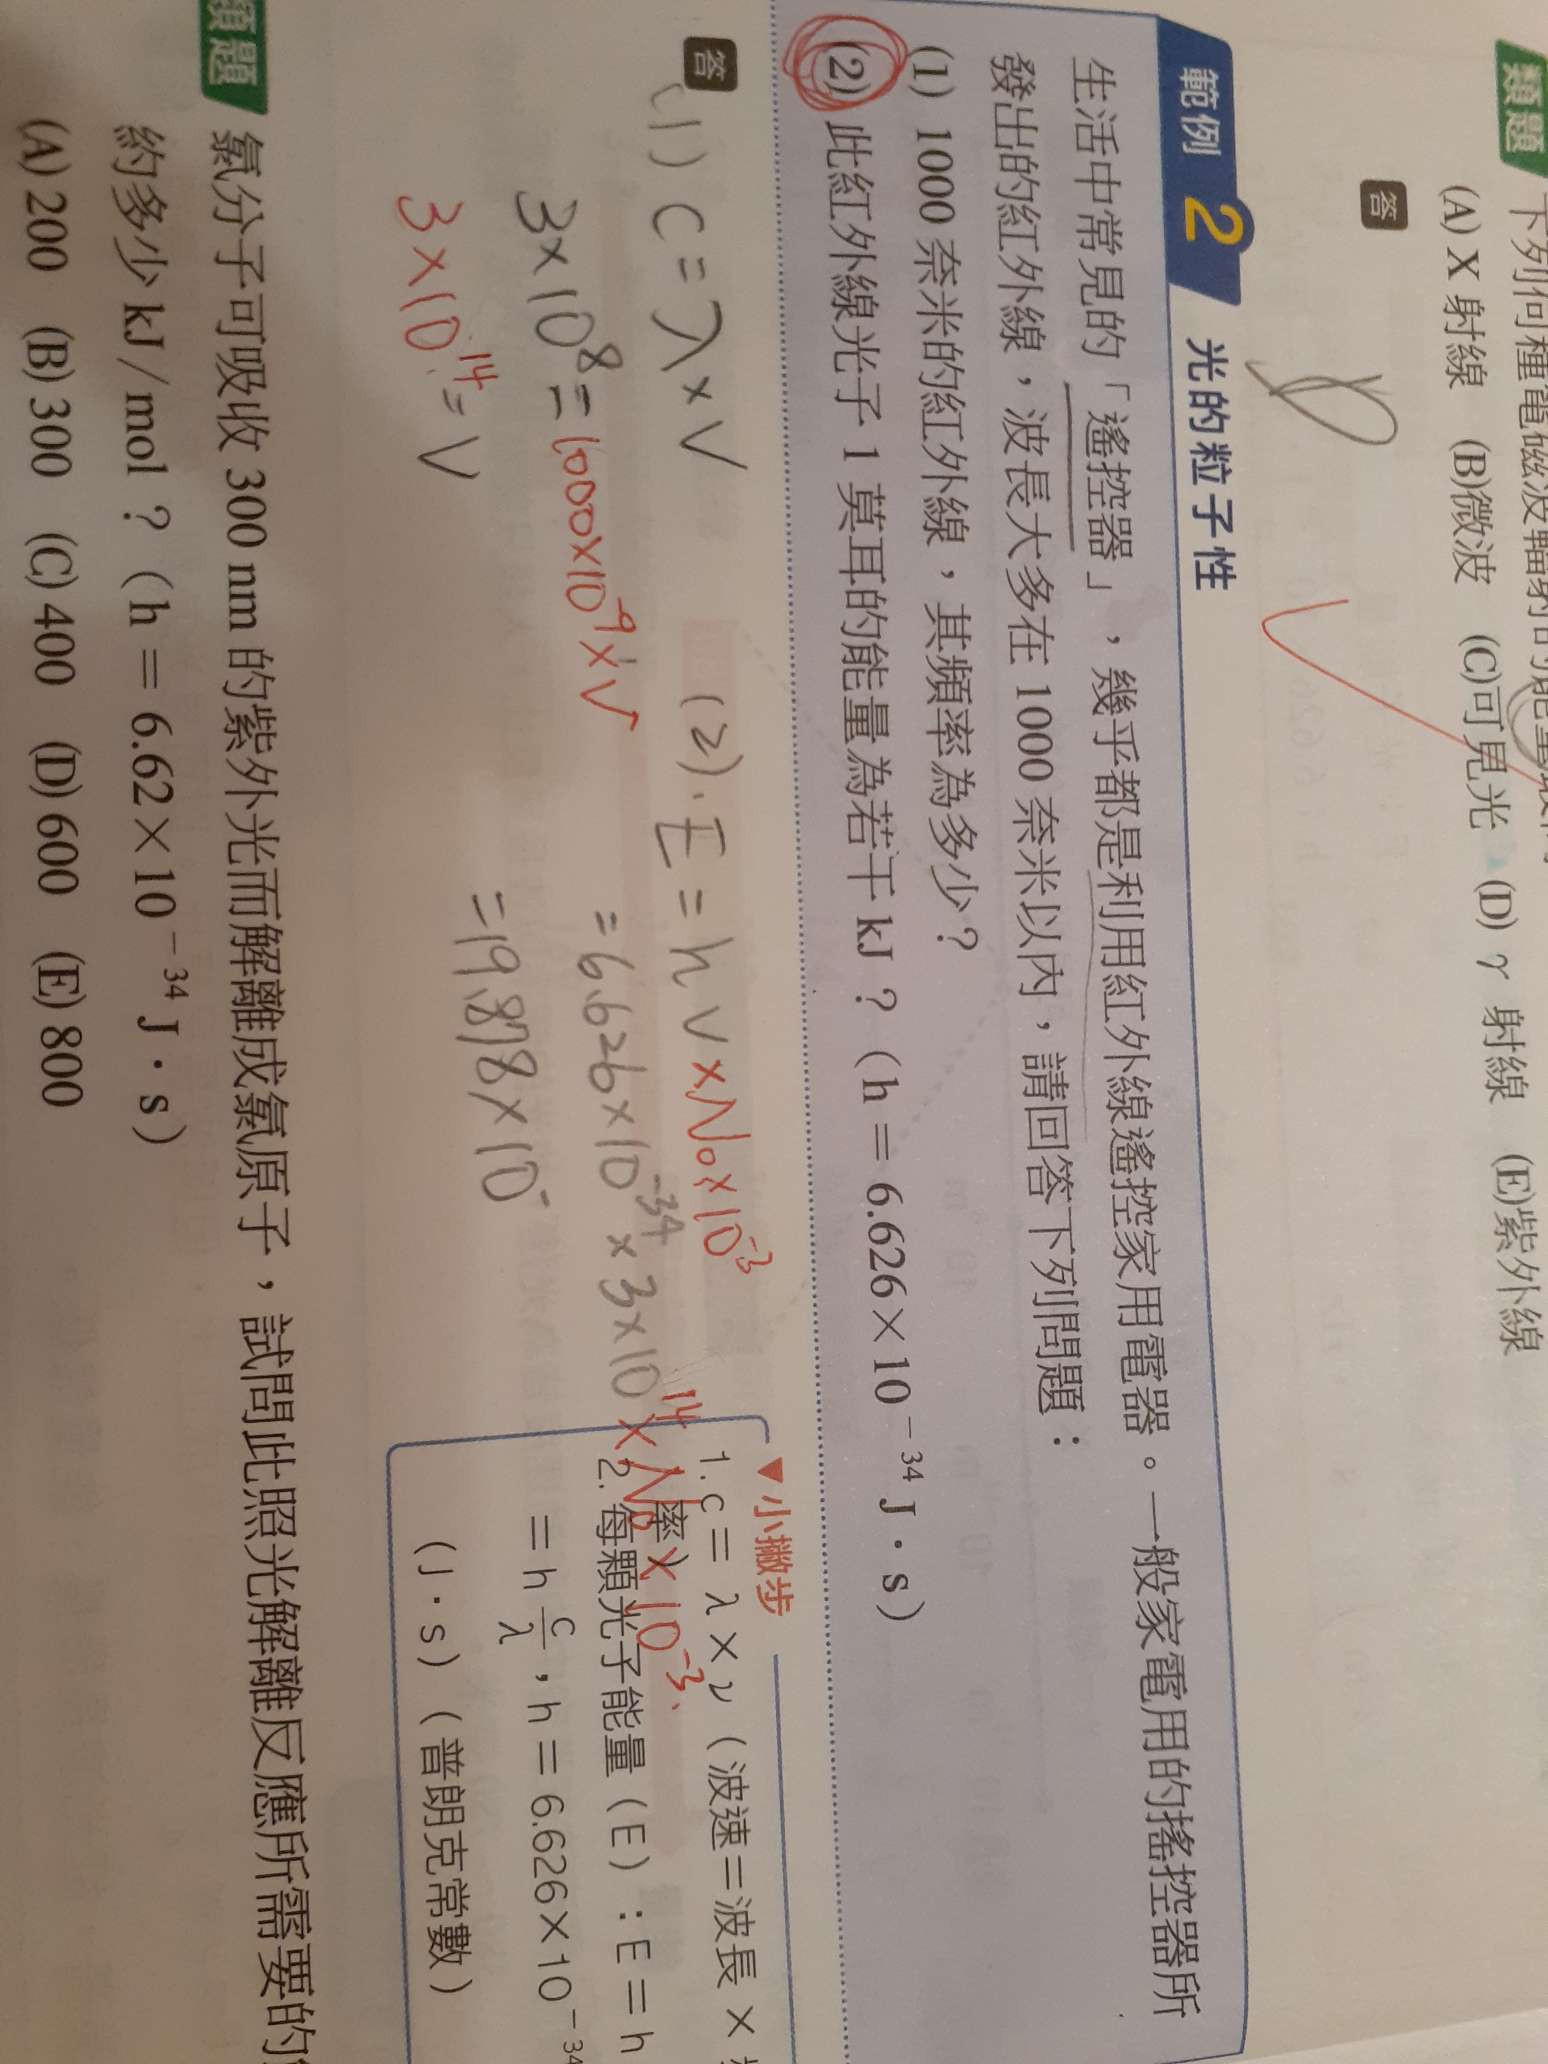 類題
下列何種電磁波輻射的能量最
(A) X 射線 (B)微波 (C)可見光 (D) γ 射線 (E)紫外線
答
D
範例 2 光的粒子性
生活中常見的「遙控器」,幾乎都是利用紅外線遙控家用電器。一般家電用的搖控器所
發出的紅外線,波長大多在 1000 奈米以內,請回答下列問題:
(1) 1000 奈米的紅外線,其頻率為多少?
(2) 此紅外線光子 1 莫耳的能量為若干 kJ?(h=6.626×10⁻³⁴ J・s)
答
(1) c=λ×ν
3×10⁸=1000×10⁻⁹×ν
3×10¹⁴=ν
(2). E=hν×N₀×10⁻³
=6.626×10⁻³⁴×3×10¹⁴×N₀×10⁻³.
=19.878×10⁻
▼小撇步
1. c=λ×ν(波速=波長×
率)
2. 每顆光子能量(E):E=h
=h c/λ,h=6.626×10⁻³⁴
(J・s)(普朗克常數)
類題
氯分子可吸收 300 nm 的紫外光而解離成氯原子,試問此照光解離反應所需要的
約多少 kJ/mol?(h=6.62×10⁻³⁴ J・s)
(A) 200 (B) 300 (C) 400 (D) 600 (E) 800